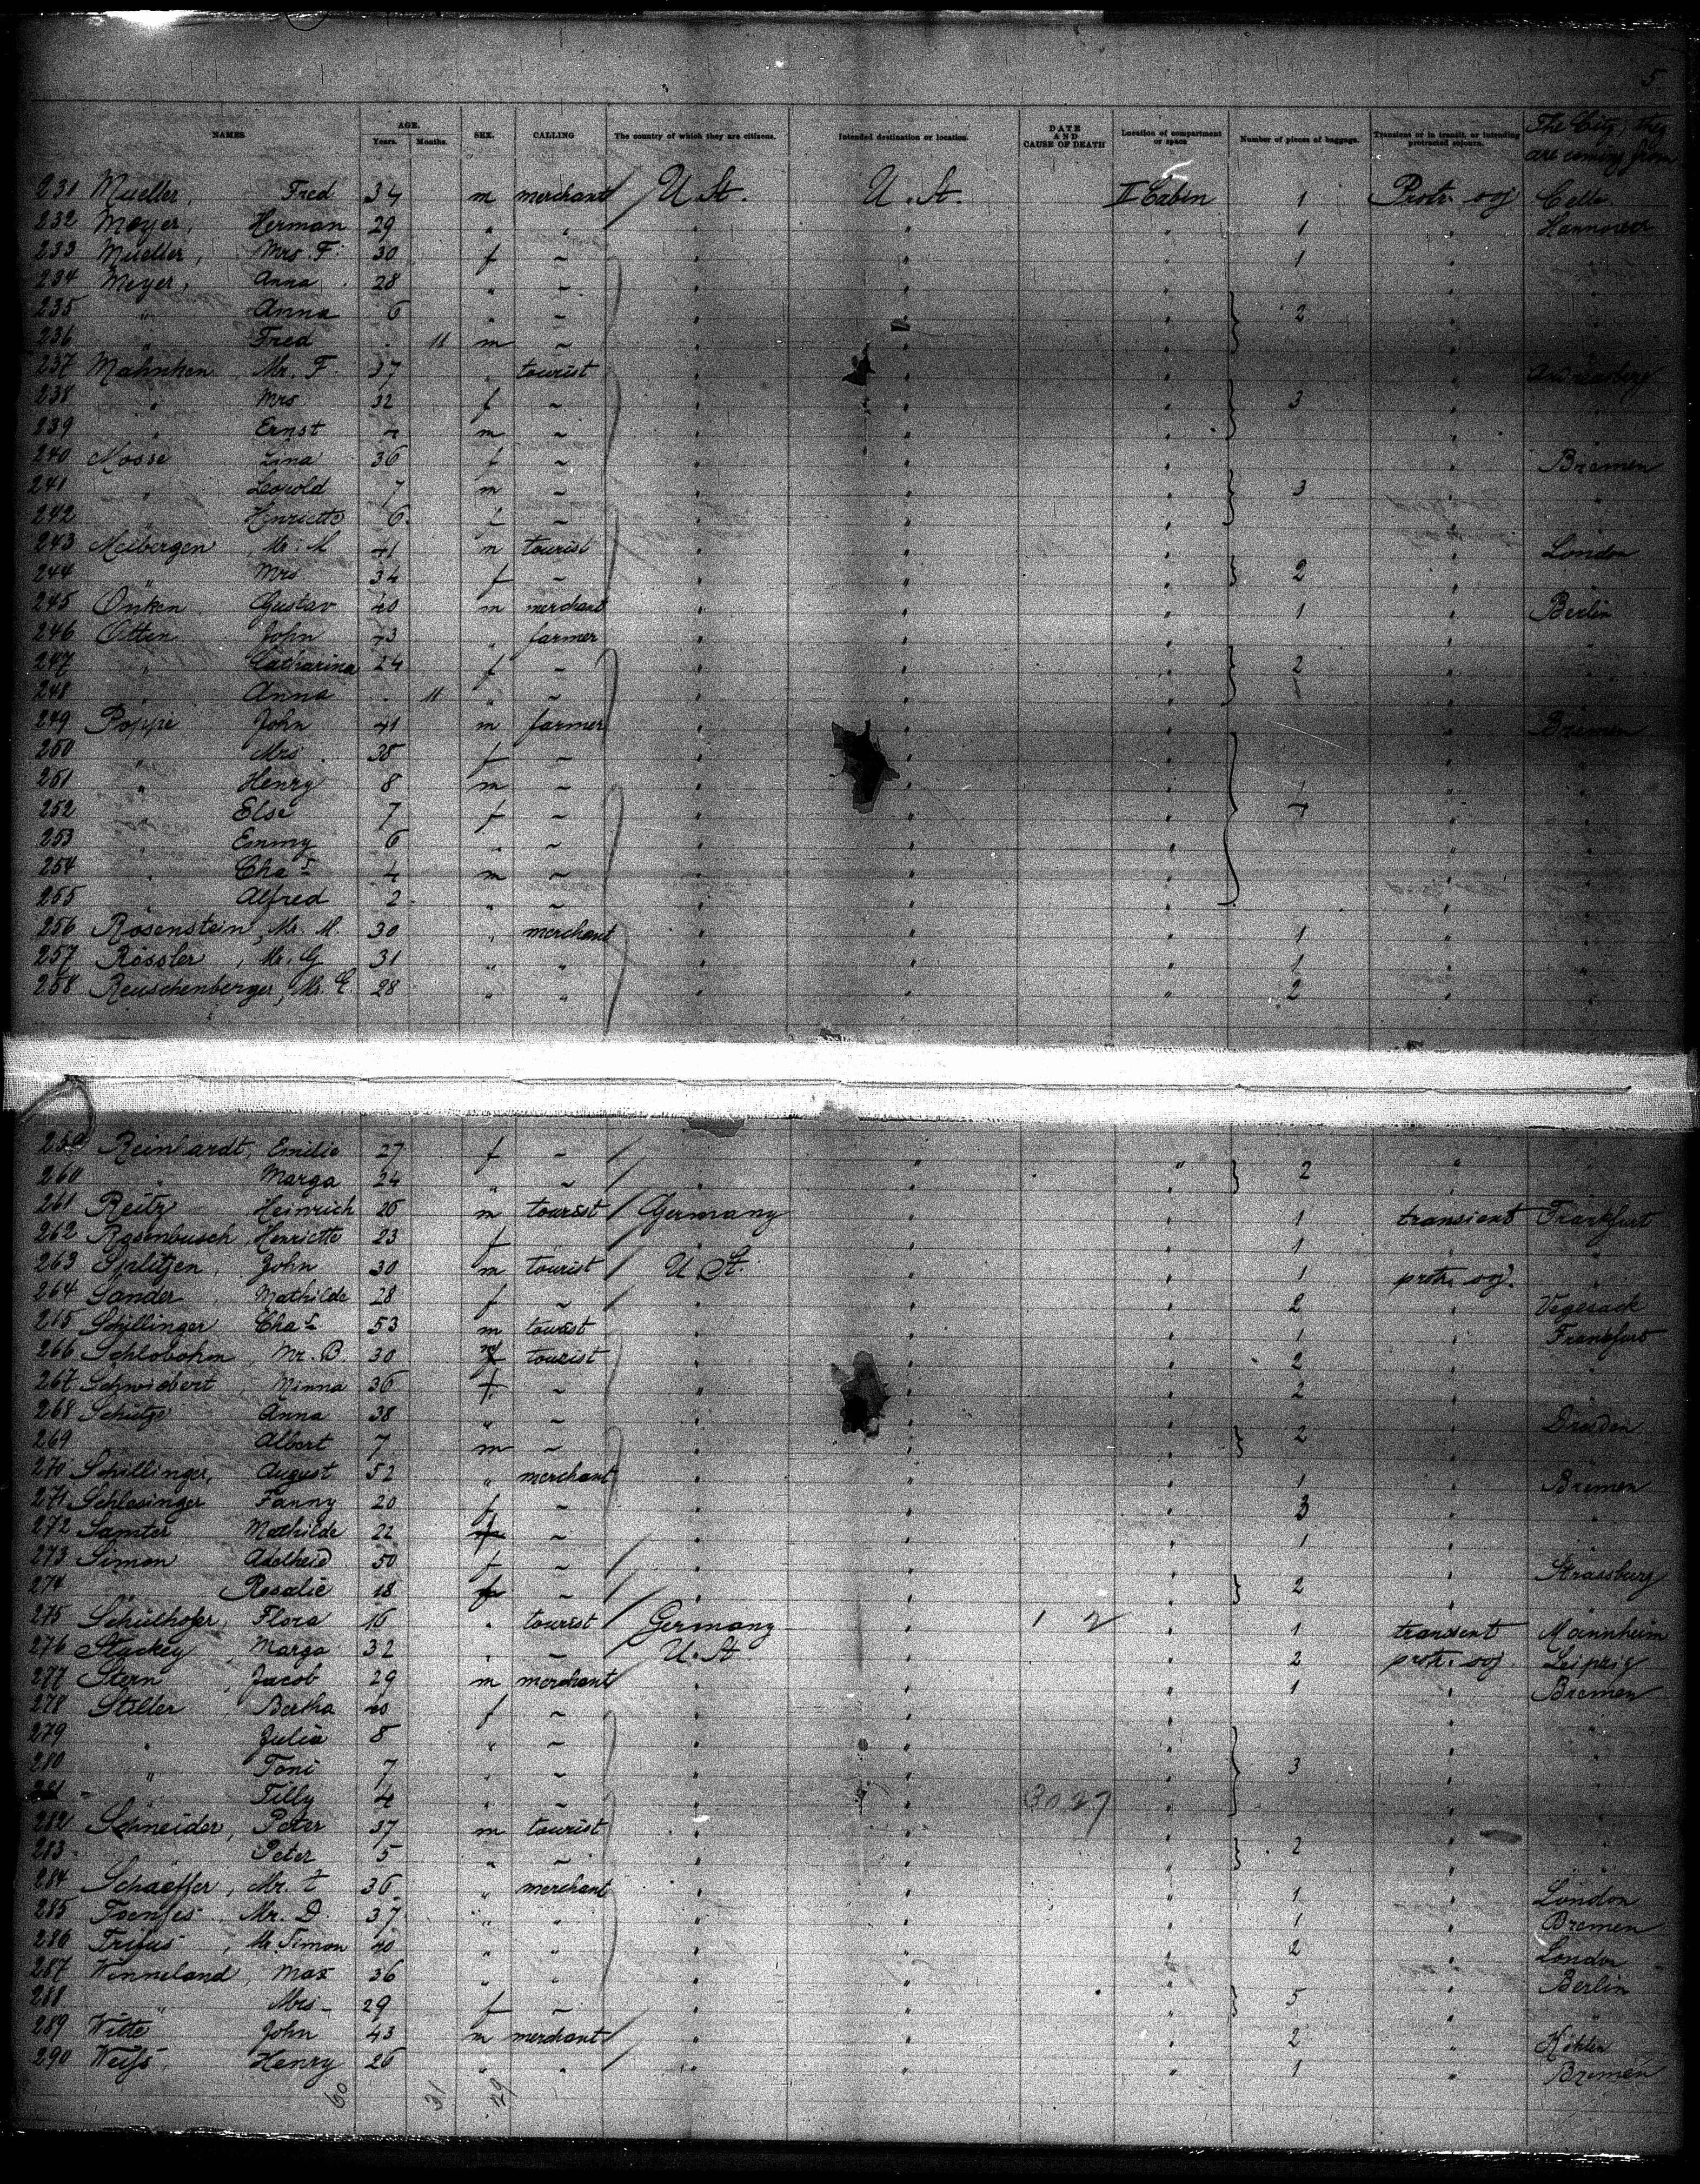 5
NAMES AGE. Years. Months. SEX. CALLING The country of which they are citizens. Intended destination or location. DATE AND CAUSE OF DEATH Location of compartment or space Number of pieces of baggage. Transient or in transit, or intending protracted sojourn. The City, they are coming from
231 Mueller, Fred 34 m merchant U St. U. St. II Cabin 1 Protr. soj Celle
232 Meyer, Herman 29 " " " " " 1 " Hannover
233 Mueller, Mrs. F. 30 f ~ " " " 1 " "
234 Meyer, Anna 28 " ~ " " " " "
235 " Anna 6 " ~ " " " 2 " "
236 " Fred 11 m ~ " " " " "
237 Mahnken Mr. F. 37 " tourist " " " " Andreasberg
238 " Mrs 32 f ~ " " " 3 " "
239 " Ernst m ~ " " " " "
240 Mosse Lina 36 f ~ " " " " Bremen
241 " Leopold 7 m ~ " " " 3 " "
242 " Henriette 6 f ~ " " " " "
243 Meibergen, Mr. M 41 m tourist " " " " London
244 " Mrs 34 f ~ " " " 2 " "
245 Onken Gustav 40 m merchant " " " 1 " Berlin
246 Otten John " farmer " " " " "
247 " Catharina 24 f ~ " " " 2 " "
248 " Anna 11 " ~ " " " " "
249 Poppe John 41 m farmer " " " " Bremen
250 " Mrs. 38 f ~ " " " " "
251 " Henry 8 m ~ " " " " "
252 " Else 7 f ~ " " " 7 " "
253 " Emmy 6 " ~ " " " " "
254 " Chas 4 m ~ " " " " "
255 " Alfred 2 " ~ " " " " "
256 Rosenstein, Mr. M. 30 " merchant " " " 1 " "
257 Rössler, Mr. G 31 " " " " " 1 " "
258 Reuschenberger, Mr. E. 28 " " " " " 2 " "
259 Reinhardt, Emilie 27 f ~ " " " " "
260 " Marga 24 " ~ " " " 2 " "
261 Reitz Heinrich 26 m tourist Germany " " 1 transient Frankfurt
262 Rosenbusch, Henriette 23 f ~ " " " 1 " "
263 John 30 m tourist U St. " " 1 protr. soj. "
264 Sander, Mathilde 28 f ~ " " " 2 " Vegesack
265 Schillinger Chas 53 m tourist " " " 1 " Frankfurt
266 Schlobohm, Mr. B. 30 m tourist " " " 2 " "
267 Schwiebert, Minna 36 f ~ " " " 2 " "
268 Schütze Anna 38 " ~ " " " " Dresden
269 Albert 7 m ~ " " " 2 " "
270 Schillinger, August 52 " merchant " " " 1 " Bremen
271 Schlesinger Fanny 20 f ~ " " " 3 " "
272 Samter Mathilde 22 f ~ " " " 1 " "
273 Simon Adelheid 50 f ~ " " " " Strassburg
274 " Rosalie 18 f ~ " " " 2 " "
275 Schülhofer, Flora 16 " tourist Germany " 1 2 " 1 transient Mannheim
276 Stuckey, Marga 32 " ~ U. St. " " 2 protr. soj Leipzig
277 Stern, Jacob 29 m merchant " " " 1 " Bremen
278 Stiller, Bertha 40 f ~ " " " " "
279 " Julia 8 " ~ " " " " "
280 " Toni 7 " ~ " " " 3 " "
281 Tilly 4 " ~ " " 3027 " " "
282 Schneider, Peter 37 m tourist " " " " "
283 Peter 5 " ~ " " " 2 " "
284 Schaeffer, Mr. 36 " merchant " " " 1 " London
285 Toenjes, Mr. D. 37 " " " " " 1 " Bremen
286 Trifus, Mr Simon 40 " " " " " 2 " London
287 Winneland, Max 36 " " " " " " Berlin
288 " Mrs 29 f ~ " " " 5 " "
289 Witte John 43 m merchant " " " 2 "
290 Weiss, Henry 26 " " " " " 1 " Bremen
60 31 29